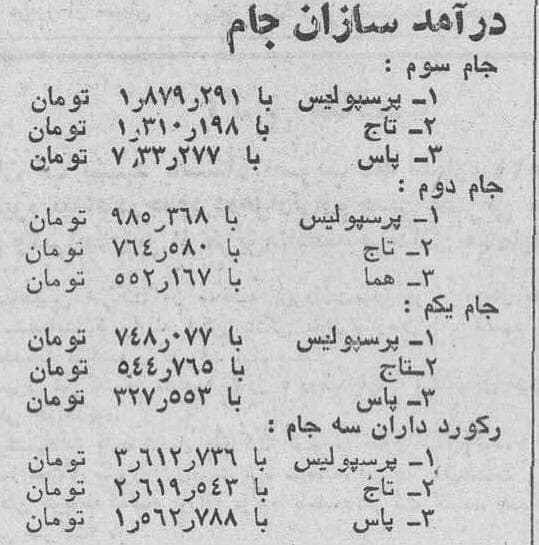 درآمد سازان جام
جام سوم :
۱ـ پرسپولیس با ۱ر۸۷۹ر۲۹۱ تومان
۲ـ تاج با ۱ر۳۱۰ر۱۹۸ تومان
۳ـ پاس با ۷ر۳۳ر۲۷۷ تومان
جام دوم :
۱ـ پرسپولیس با ۹۸۵ر۳۶۸ تومان
۲ـ تاج با ۷۶٤ر۵۸۰ تومان
۳ـ هما با ۵۵۲ر۱۶۷ تومان
جام یکم :
۱ـ پرسپولیس با ۷٤۸ر۰۷۷ تومان
۲ـتاج با ۵٤٤ر۷۶۵ تومان
۳ـ پاس با ۳۲۷ر۵۵۳ تومان
رکورد داران سه جام :
۱ـ پرسپولیس با ۳ر۶۱۲ر۷۳۶ تومان
۲ـ تاج با ۲ر۶۱۹ر۵٤۳ تومان
۳ـ پاس با ۱ر۵۶۲ر۷۸۸ تومان